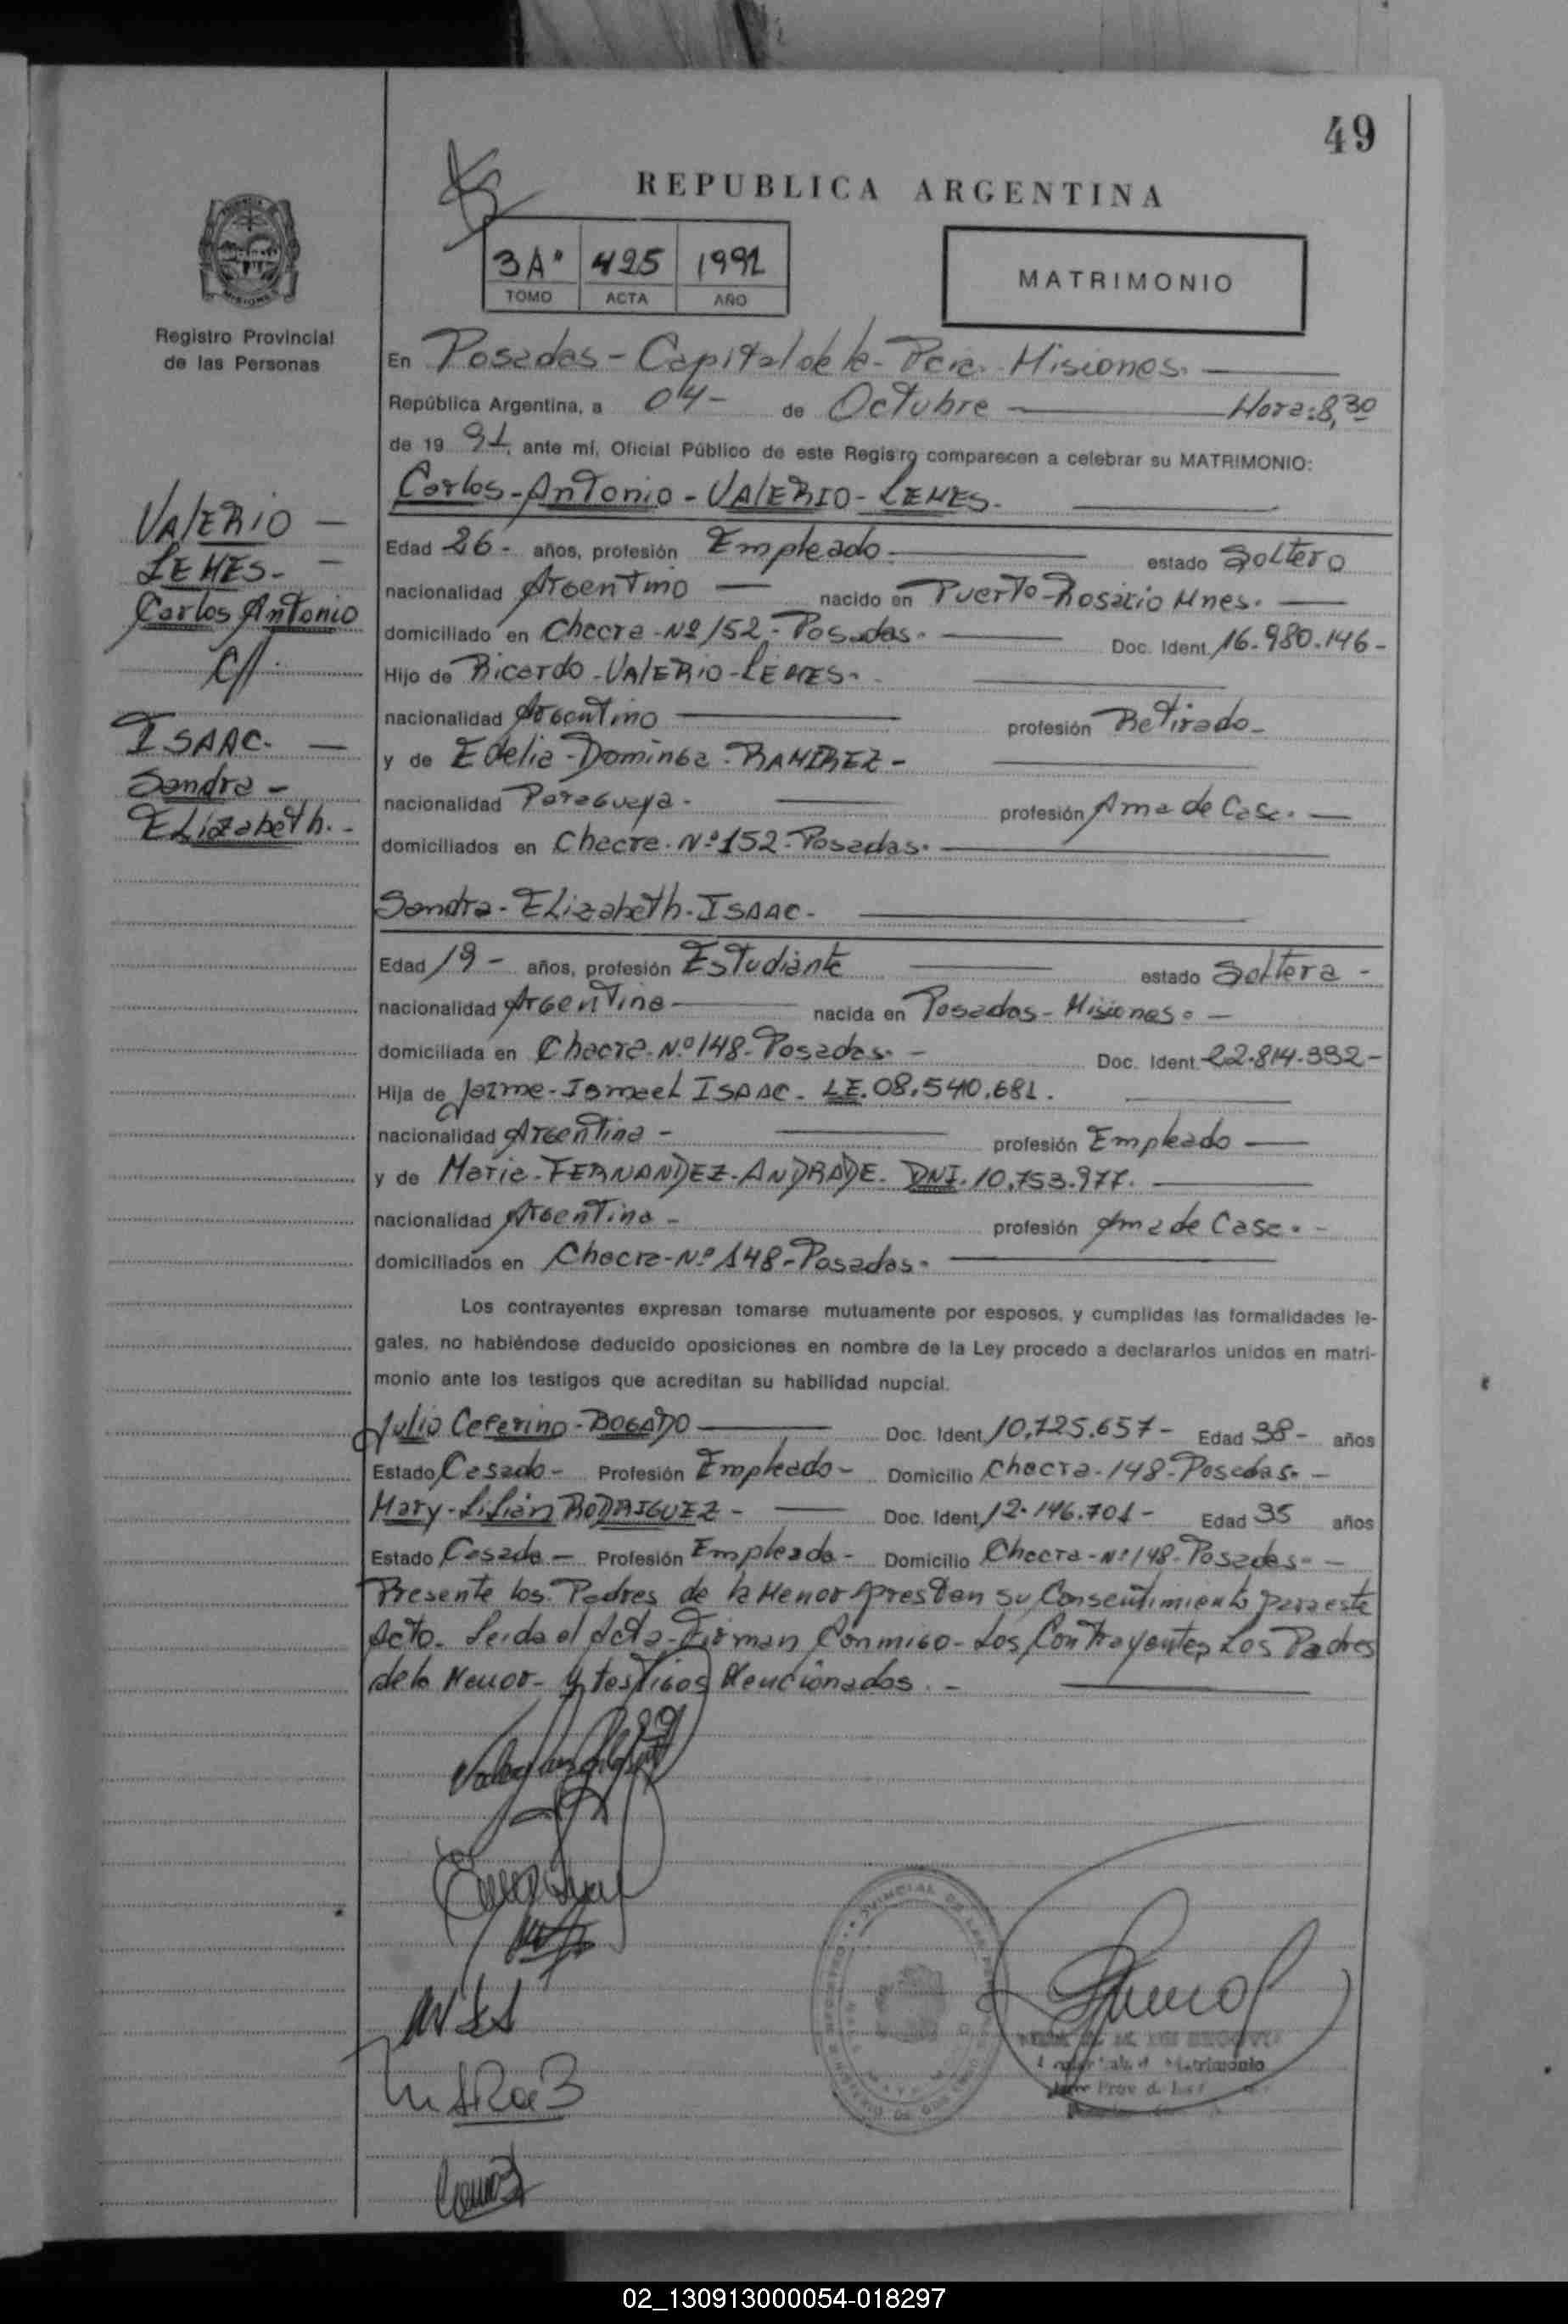 49
REPUBLICA ARGENTINA
3Aº 425 1991
TOMO ACTA AÑO
MATRIMONIO
MISIONES
Registro Provincial
de las Personas
En Posadas - Capital de la - Pcia. Misiones.
República Argentina, a 04 - de Octubre Hora: 8,30
de 19 91, ante mí, Oficial Público de este Registro comparecen a celebrar su MATRIMONIO:
Carlos - Antonio - VALERIO - LEMES.
VALERIO -
LEMES. -
Carlos Antonio
C/
ISAAC. -
Sandra -
Elizabeth. -
Edad 26 - años, profesión Empleado. estado Soltero
nacionalidad Argentino nacido en Puerto Rosario Mnes.
domiciliado en Chacra - Nº 152 - Posadas. Doc. Ident. 16.980.146 -
Hijo de Ricardo - VALERIO - LEMES.
nacionalidad Argentino profesión Retirado -
y de Edelia - Dominga - RAMIREZ -
nacionalidad Paraguaya - profesión Ama de Casa.
domiciliados en Chacra - Nº 152 - Posadas.
Sandra - Elizabeth - ISAAC -
Edad 19 - años, profesión Estudiante estado Soltera -
nacionalidad Argentina nacida en Posadas - Misiones.
domiciliada en Chacra - Nº 148 - Posadas. - Doc. Ident. 22.814.332 -
Hija de Jaime - Ismael ISAAC - LE. 08.540.681.
nacionalidad Argentina - profesión Empleado
y de Maria - FERNANDEZ - ANDRADE - DNI. 10.753.977.
nacionalidad Argentina - profesión Ama de Casa. -
domiciliados en Chacra - Nº 148 - Posadas.
Los contrayentes expresan tomarse mutuamente por esposos, y cumplidas las formalidades le-
gales, no habiéndose deducido oposiciones en nombre de la Ley procedo a declararlos unidos en matri-
monio ante los testigos que acreditan su habilidad nupcial.
Julio Ceferino - BOGADO Doc. Ident. 10.725.657 - Edad 38 - años
Estado Casado - Profesión Empleado - Domicilio Chacra - 148 - Posadas. -
Mary - Lilián RODRIGUEZ - Doc. Ident. 12.146.701 - Edad 35 años
Estado Casada - Profesión Empleada - Domicilio Chacra - Nº 148 - Posadas. -
Presente los Padres de la Menor Prestan su Consentimiento para este
Acto. Leida el Acta - Firman Conmigo - Los Contrayentes Los Padres
de la Menor - y testigos Mencionados. -
Matrimonio
02_130913000054-018297